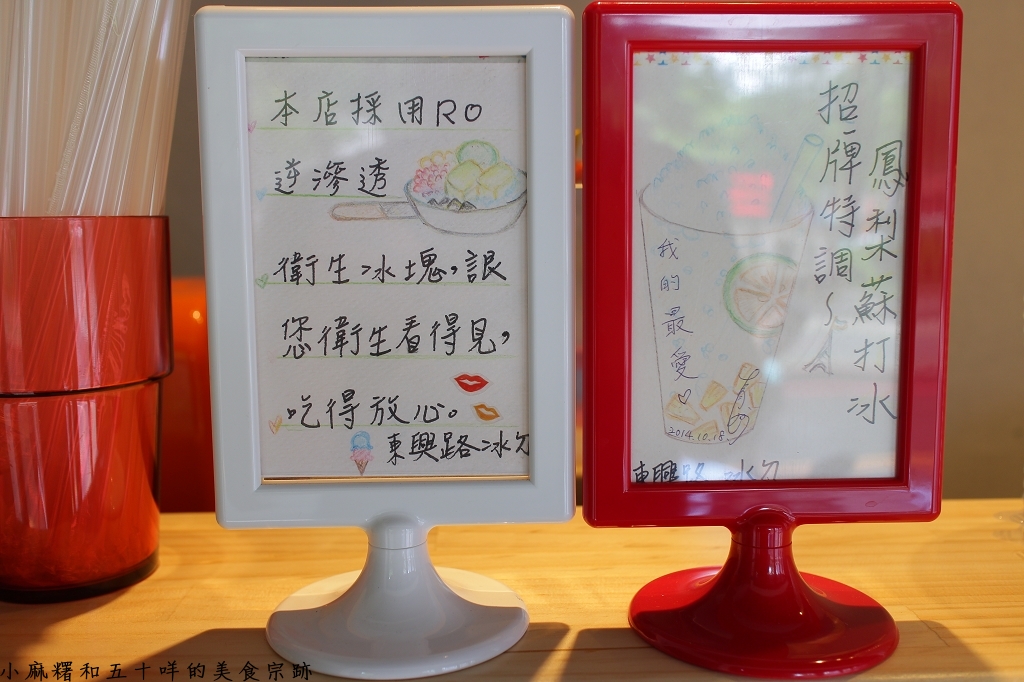 本店採用RO
逆滲透
衛生冰塊,讓
您衛生看得見,
吃得放心。
東興路冰勺
招牌特調~
鳳梨蘇打冰
我的最愛
2014.10.18
東興路 冰勺
小麻糬和五十咩的美食宗跡